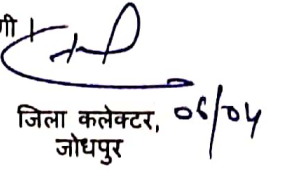 गी।
जिला कलेक्टर, 06/04
जोधपुर